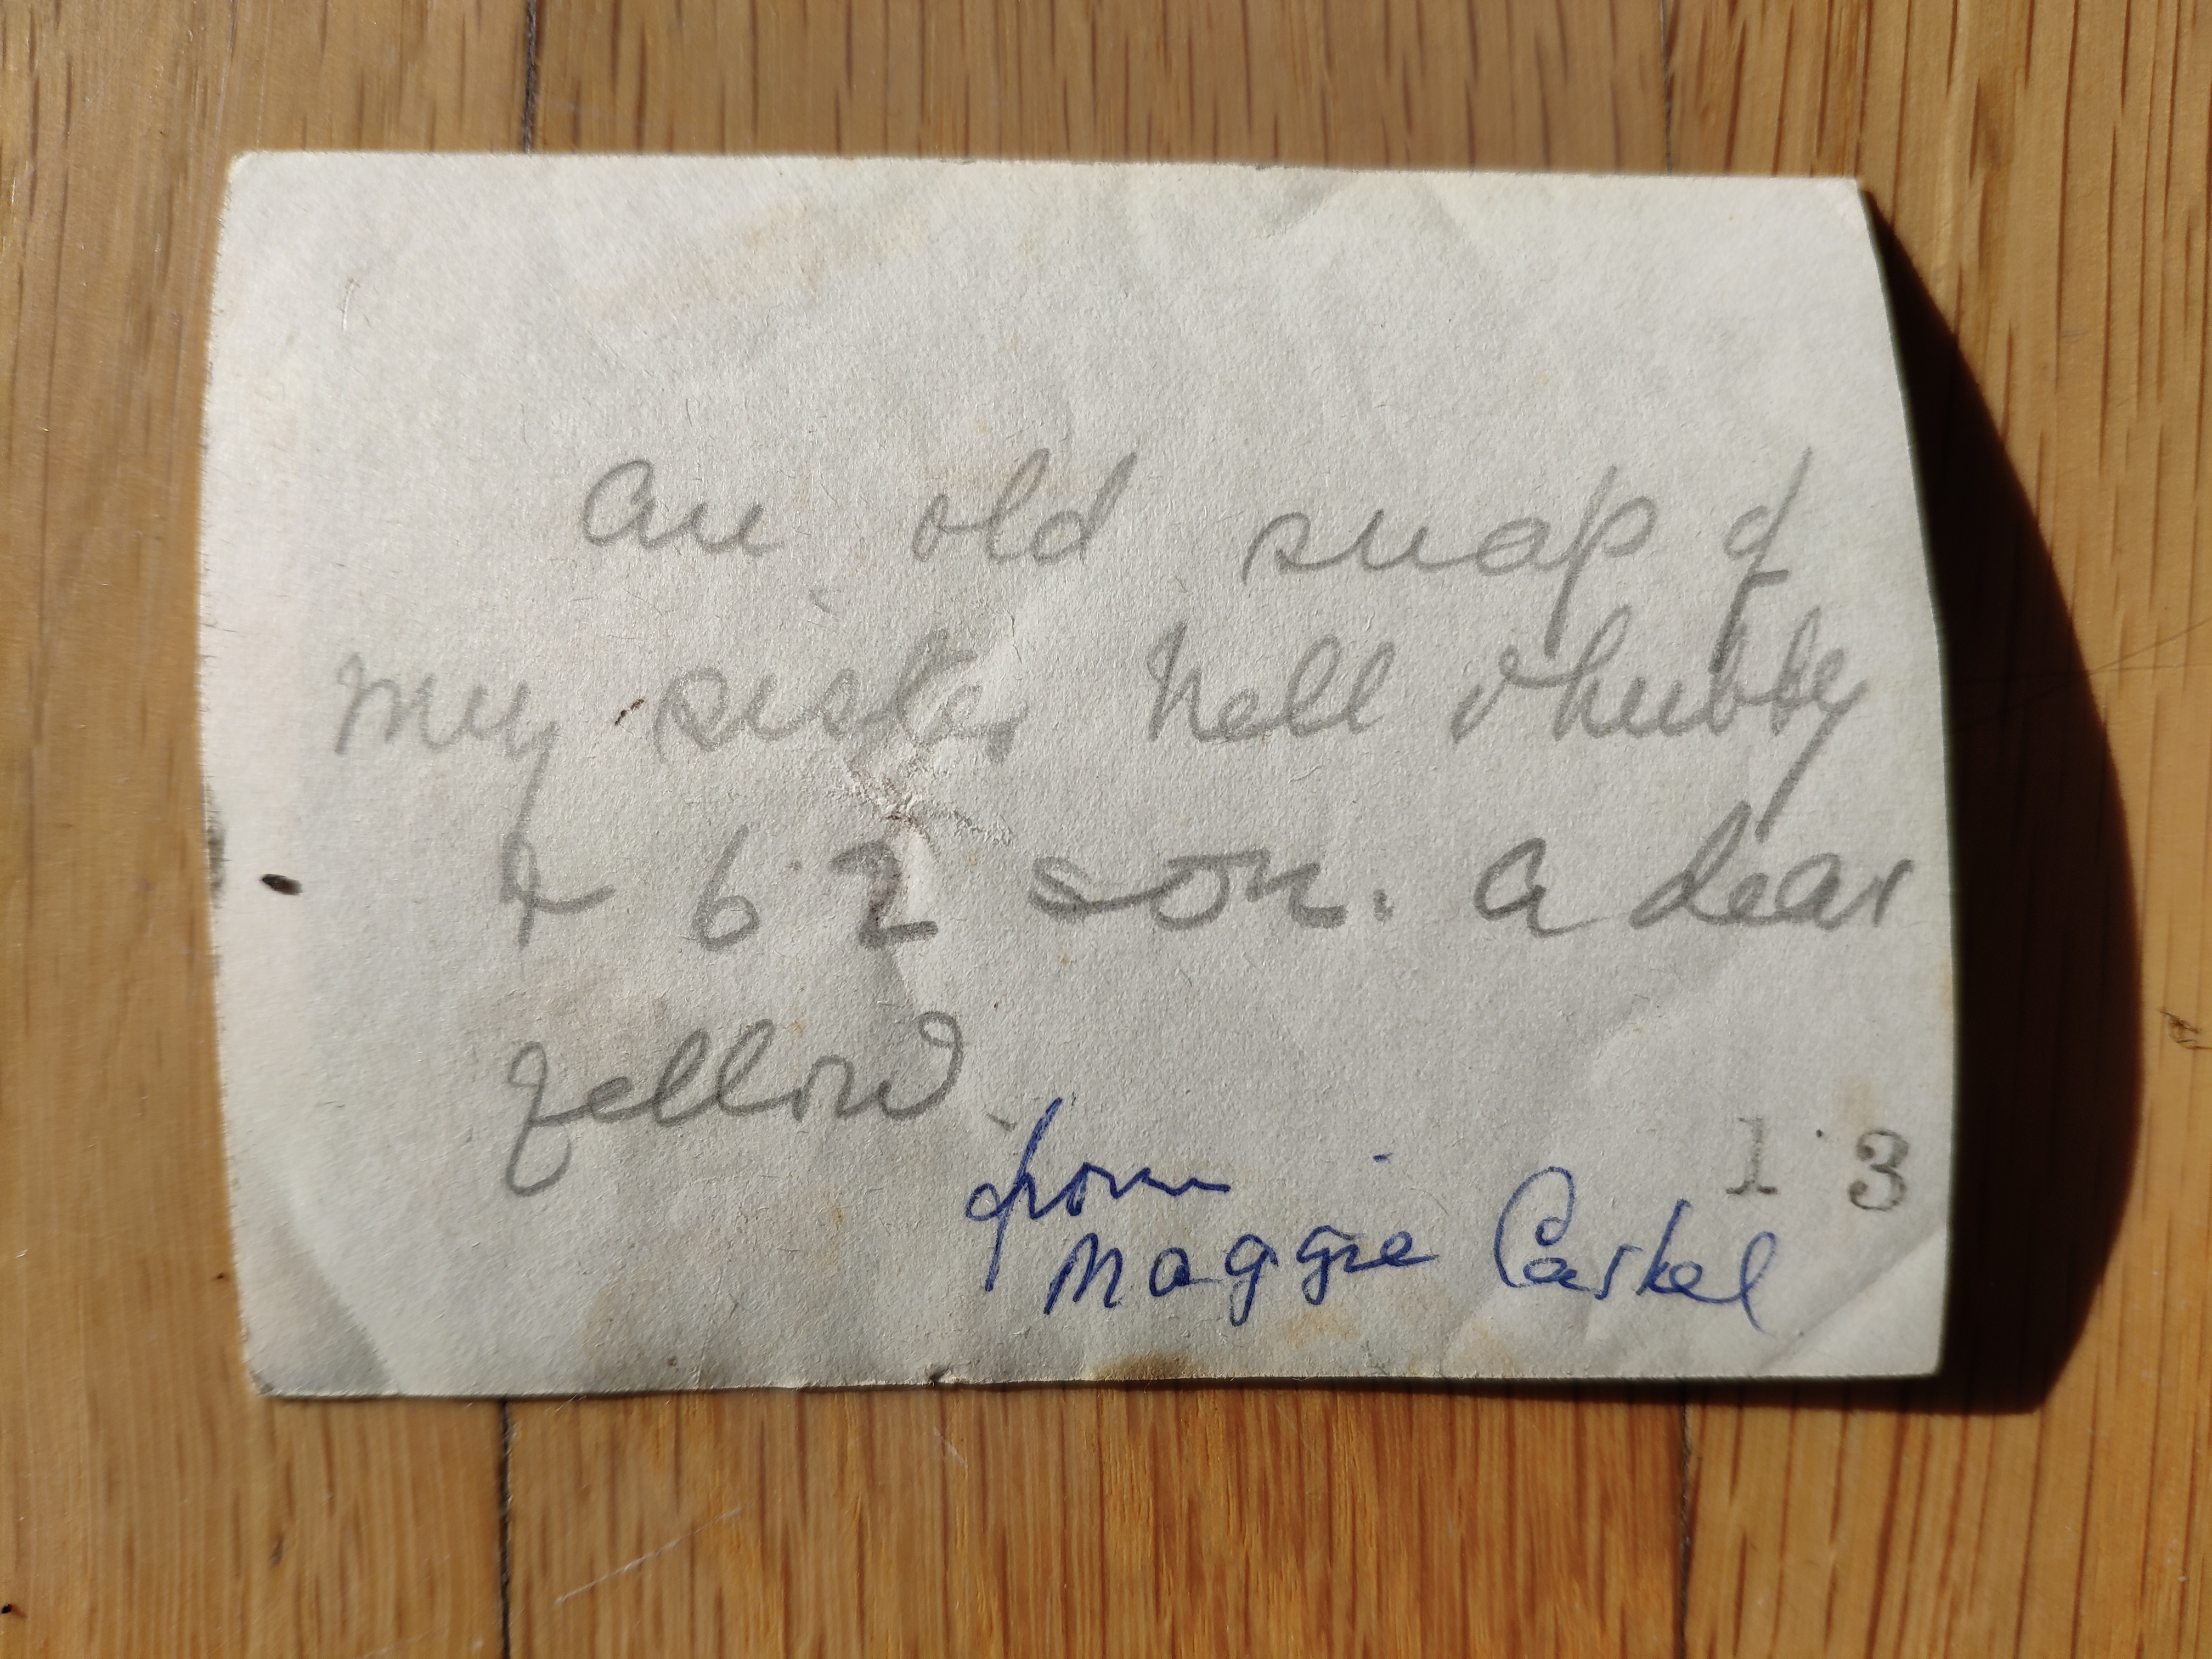 An old snap of
my sister Nell & hubby
& 6·2 son. A dear
fellow.
from
Maggie Carkel
1 3